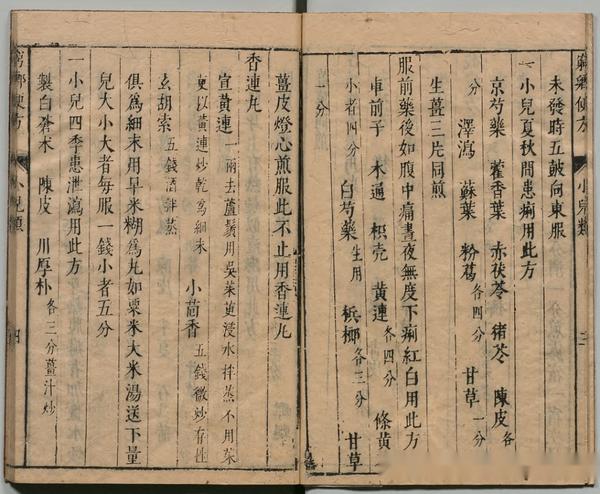 窮鄉便方 小兒類
未發時五皷向東服
一小兒夏秋間患痢用此方
京芍藥 藿香葉 赤茯苓 猪苓 陳皮各
分 澤瀉 蘇葉 粉葛各四分 甘草一分
生薑三片同煎
服前藥後如腹中痛晝夜無度下痢紅白用此方
車前子 木通 枳壳 黄連各四分 條黄
小者四分 白芍藥生用 檳榔各三分 甘草
一分
薑皮燈心煎服此不止用香連丸
香連丸
宣黄連 一兩去蘆鬚用吳茱萸浸水拌蒸不用茱
萸以黄連炒乾爲細末 小茴香 五錢微炒存性
玄胡索 五錢酒拌蒸
俱爲細末用早米糊爲丸如粟米大米湯送下量
兒大小大者每服一錢小者五分
一小兒四季患泄瀉用此方
製白蒼术 陳皮 川厚朴各三分薑汁炒
窮鄉便方 小兒類 四